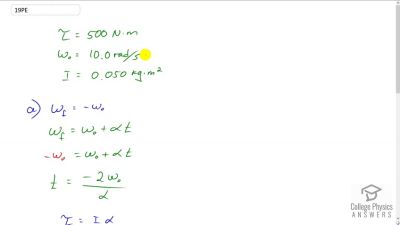 19PE
τ = 500 N·m
ω₀ = 10.0 rad/s
I = 0.050 kg·m²
a) ω_f = -ω₀
ω_f = ω₀ + αt
-ω₀ = ω₀ + αt
t = -2ω₀/α
τ = Iα
College Physics
ANSWERS